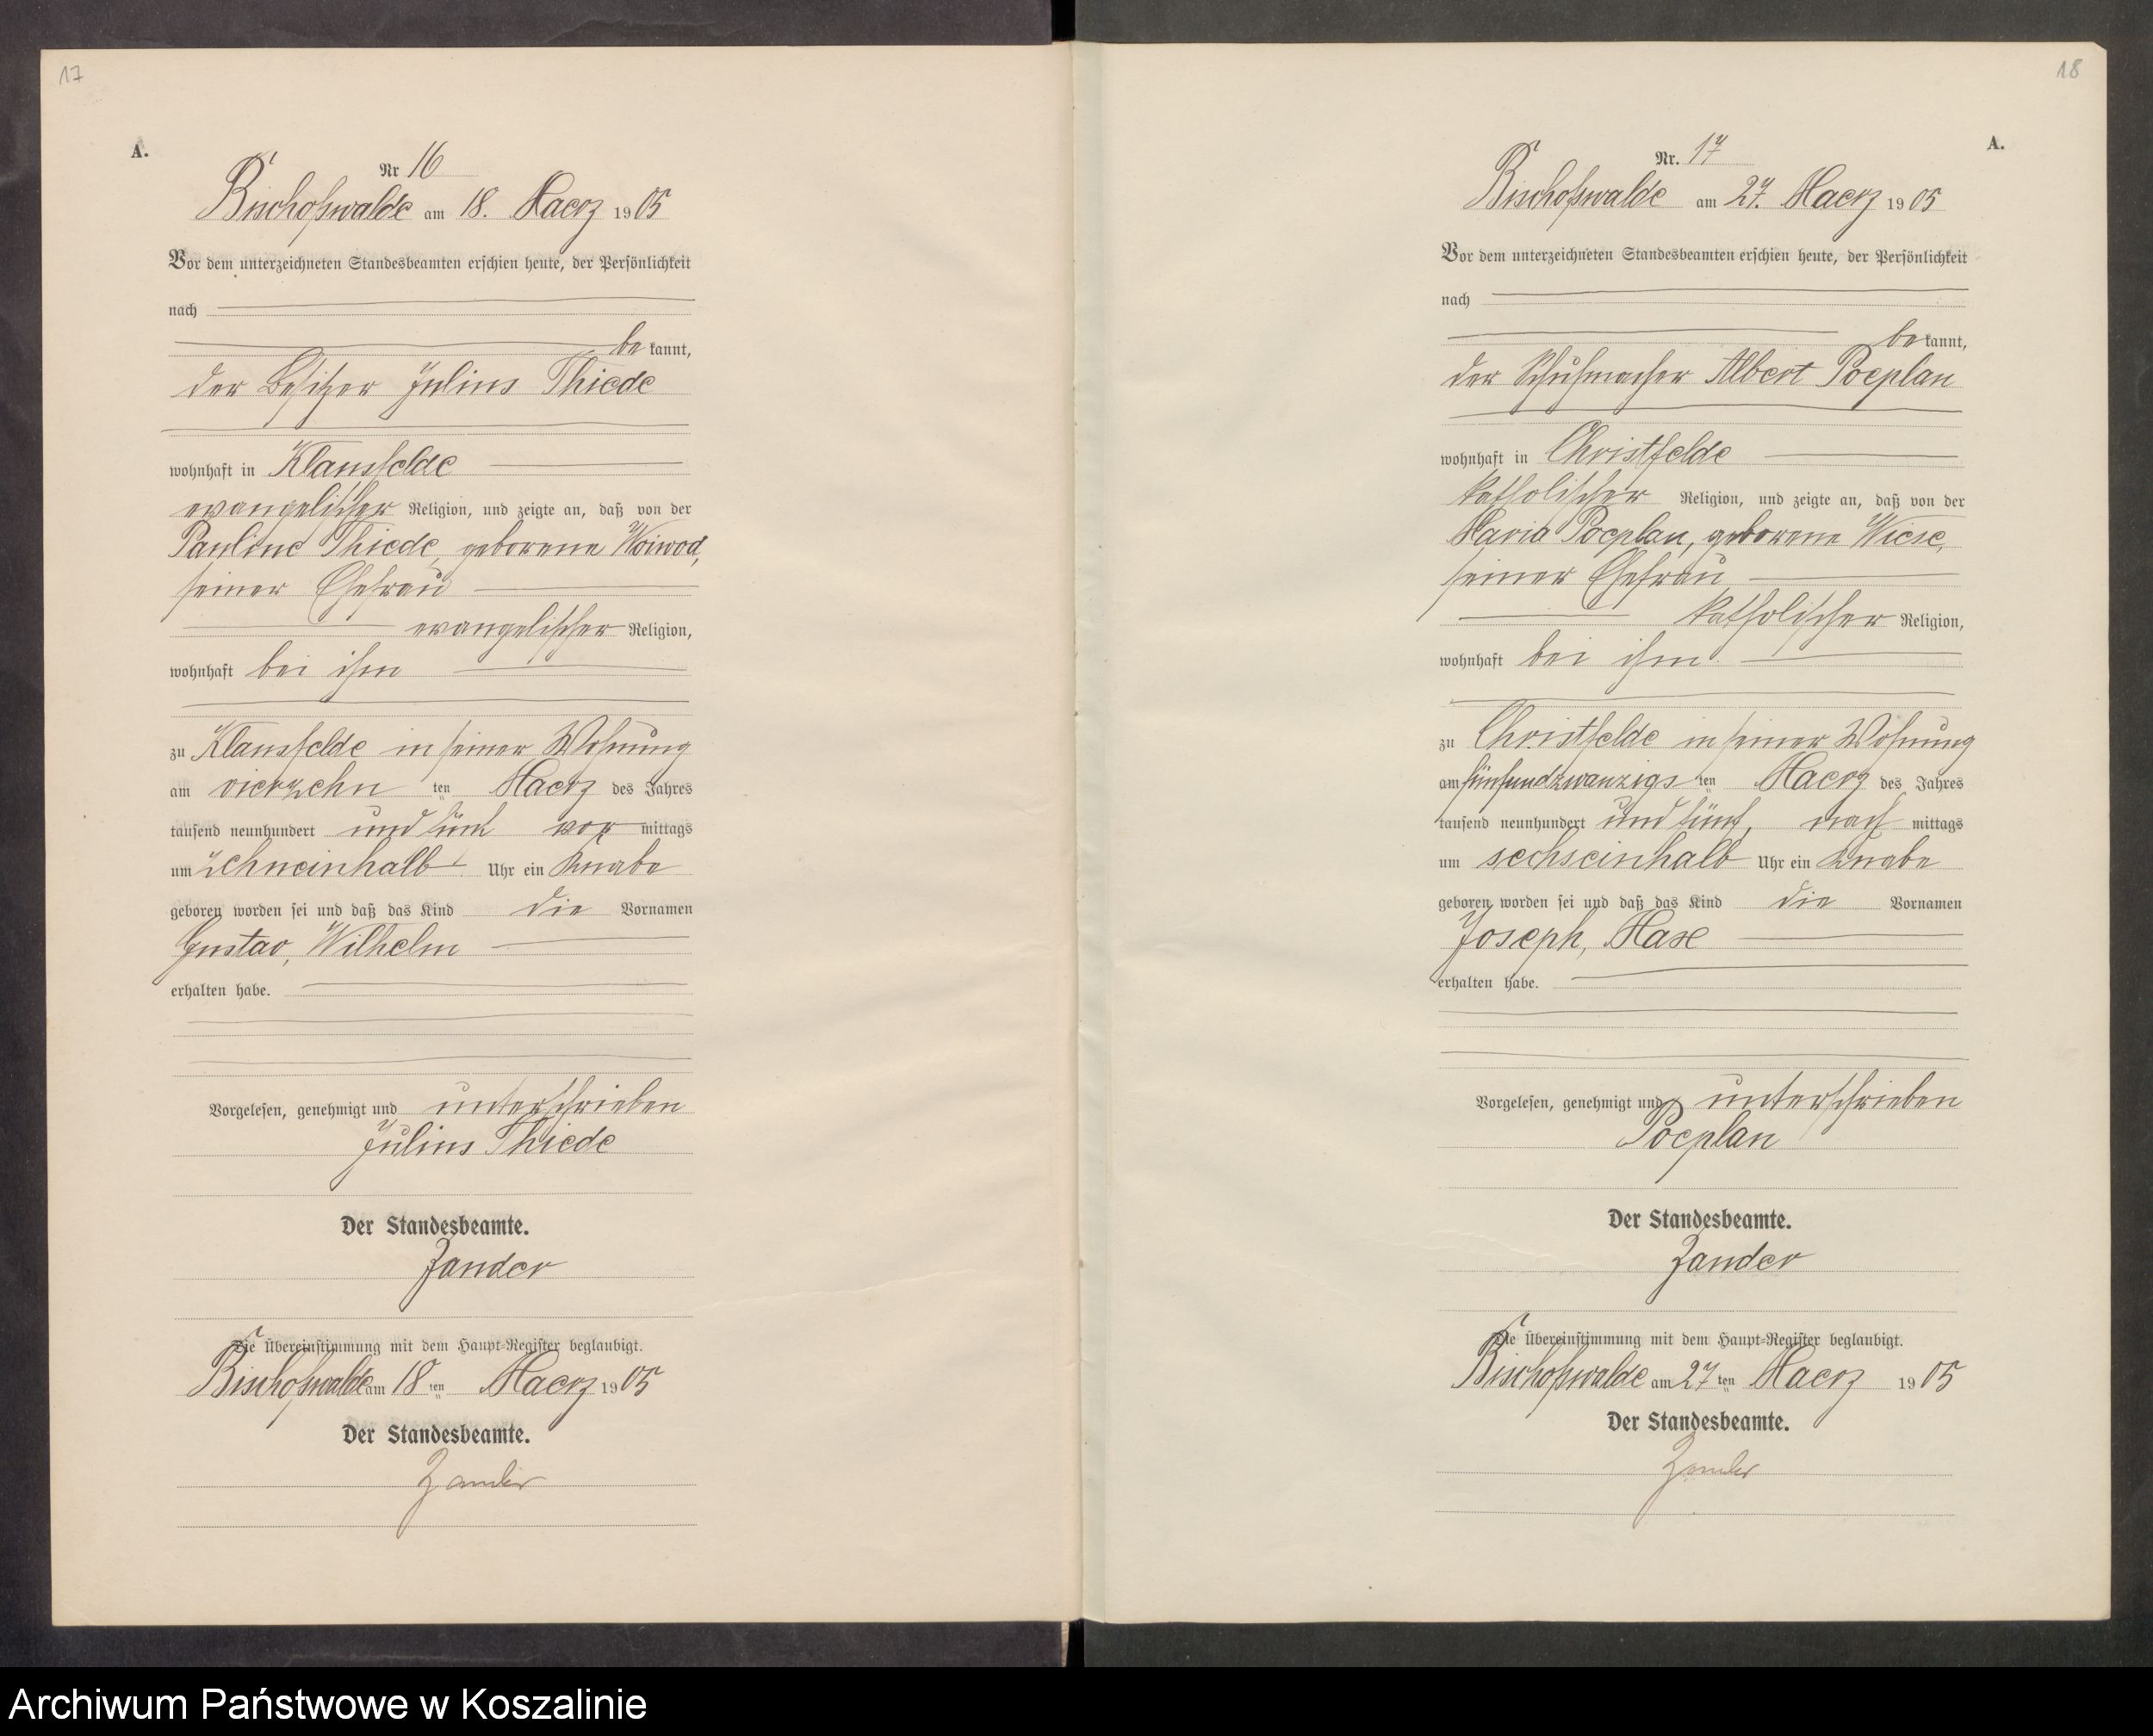 17
A.
Nr 16
Bischofswalde am 18. Maerz 1905
Vor dem unterzeichneten Standesbeamten erschien heute, der Persönlichkeit
nach
be kannt,
der Besitzer Julius Thiede
wohnhaft in Klausfelde
evangelischer Religion, und zeigte an, daß von der
Pauline Thiede, geborene Woiwod,
seiner Ehefrau
evangelischer Religion,
wohnhaft bei ihm
zu Klausfelde in seiner Wohnung
am vierzehn ten Maerz des Jahres
tausend neunhundert und fünf vor mittags
um zehneinhalb Uhr ein Knabe
geboren worden sei und daß das Kind die Vornamen
Gustav, Wilhelm
erhalten habe.
Vorgelesen, genehmigt und unterschrieben
Julius Thiede
Der Standesbeamte.
Zander
Die Übereinstimmung mit dem Haupt-Register beglaubigt.
Bischofswalde am 18 ten Maerz 1905
Der Standesbeamte.
Zander
18
A.
Nr. 17
Bischofswalde am 27. Maerz 1905
Vor dem unterzeichneten Standesbeamten erschien heute, der Persönlichkeit
nach
be kannt,
der Schuhmacher Albert Poeplau
wohnhaft in Christfelde
katholischer Religion, und zeigte an, daß von der
Maria Poeplau, geborene Wiese,
seiner Ehefrau
katholischer Religion,
wohnhaft bei ihm
zu Christfelde in seiner Wohnung
am fünfundzwanzigs ten Maerz des Jahres
tausend neunhundert und fünf, nach mittags
um sechseinhalb Uhr ein Knabe
geboren worden sei und daß das Kind die Vornamen
Joseph, Max
erhalten habe.
Vorgelesen, genehmigt und unterschrieben
Poeplau
Der Standesbeamte.
Zander
Die Übereinstimmung mit dem Haupt-Register beglaubigt.
Bischofswalde am 27 ten Maerz 1905
Der Standesbeamte.
Zander
Archiwum Państwowe w Koszalinie